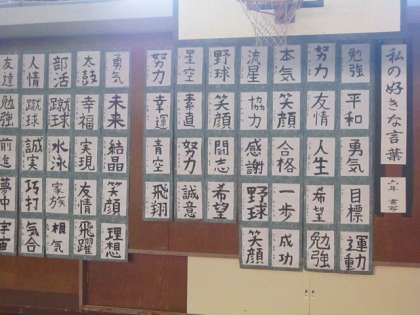 私の好きな言葉
六年
勉強
平和
勇気
目標
運動
努力
友情
人生
希望
勉強
本気
笑顔
合格
一歩
成功
流星
協力
感謝
野球
笑顔
野球
笑顔
闘志
希望
星空
素直
努力
誠意
努力
幸運
青空
飛翔
勇気
未来
結晶
笑顔
理想
太鼓
幸福
実現
友情
飛躍
部活
蹴球
水泳
家族
根気
人情
蹴球
誠実
巧打
気合
友達
勉強
前進
夢中
宇宙